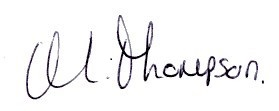 M. Thompson.